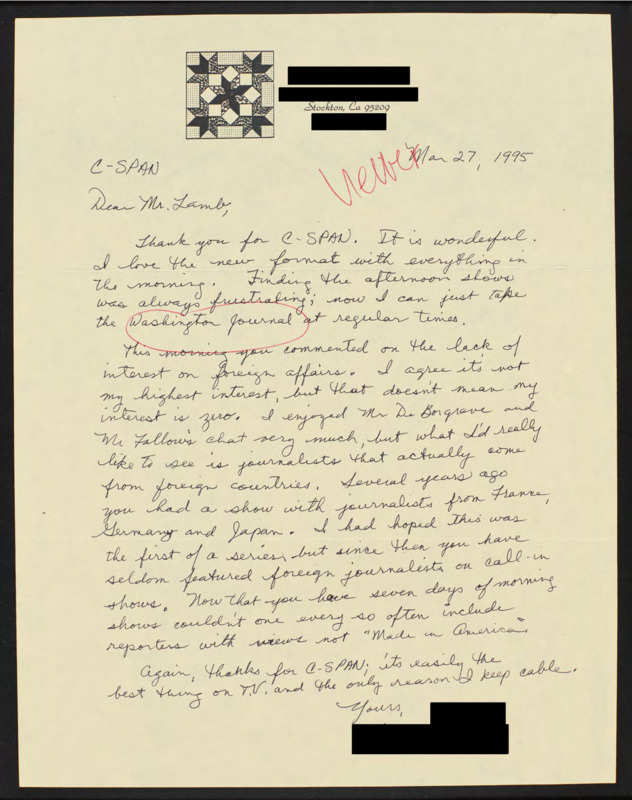 Stockton, Ca 95209
Viewer
Mar 27, 1995
C-SPAN
Dear Mr. Lamb,
Thank you for C-SPAN. It is wonderful.
I love the new format with everything in
the morning. Finding the afternoon shows
was always frustrating; now I can just take
the Washington Journal at regular times.
This morning you commented on the lack of
interest on foreign affairs. I agree it's not
my highest interest, but that doesn't mean my
interest is zero. I enjoyed Mr De Borgrave and
Mr Fallow's chat very much, but what I'd really
like to see is journalists that actually come
from foreign countries. Several years ago
you had a show with journalists from France,
Germany and Japan. I had hoped this was
the first of a series, but since then you have
seldom featured foreign journalists on call-in
shows. Now that you have seven days of morning
shows couldn't one every so often include
reporters with views not "Made in America"
Again, thanks for C-SPAN; it's easily the
best thing on T.V. and the only reason I keep cable.
Yours,